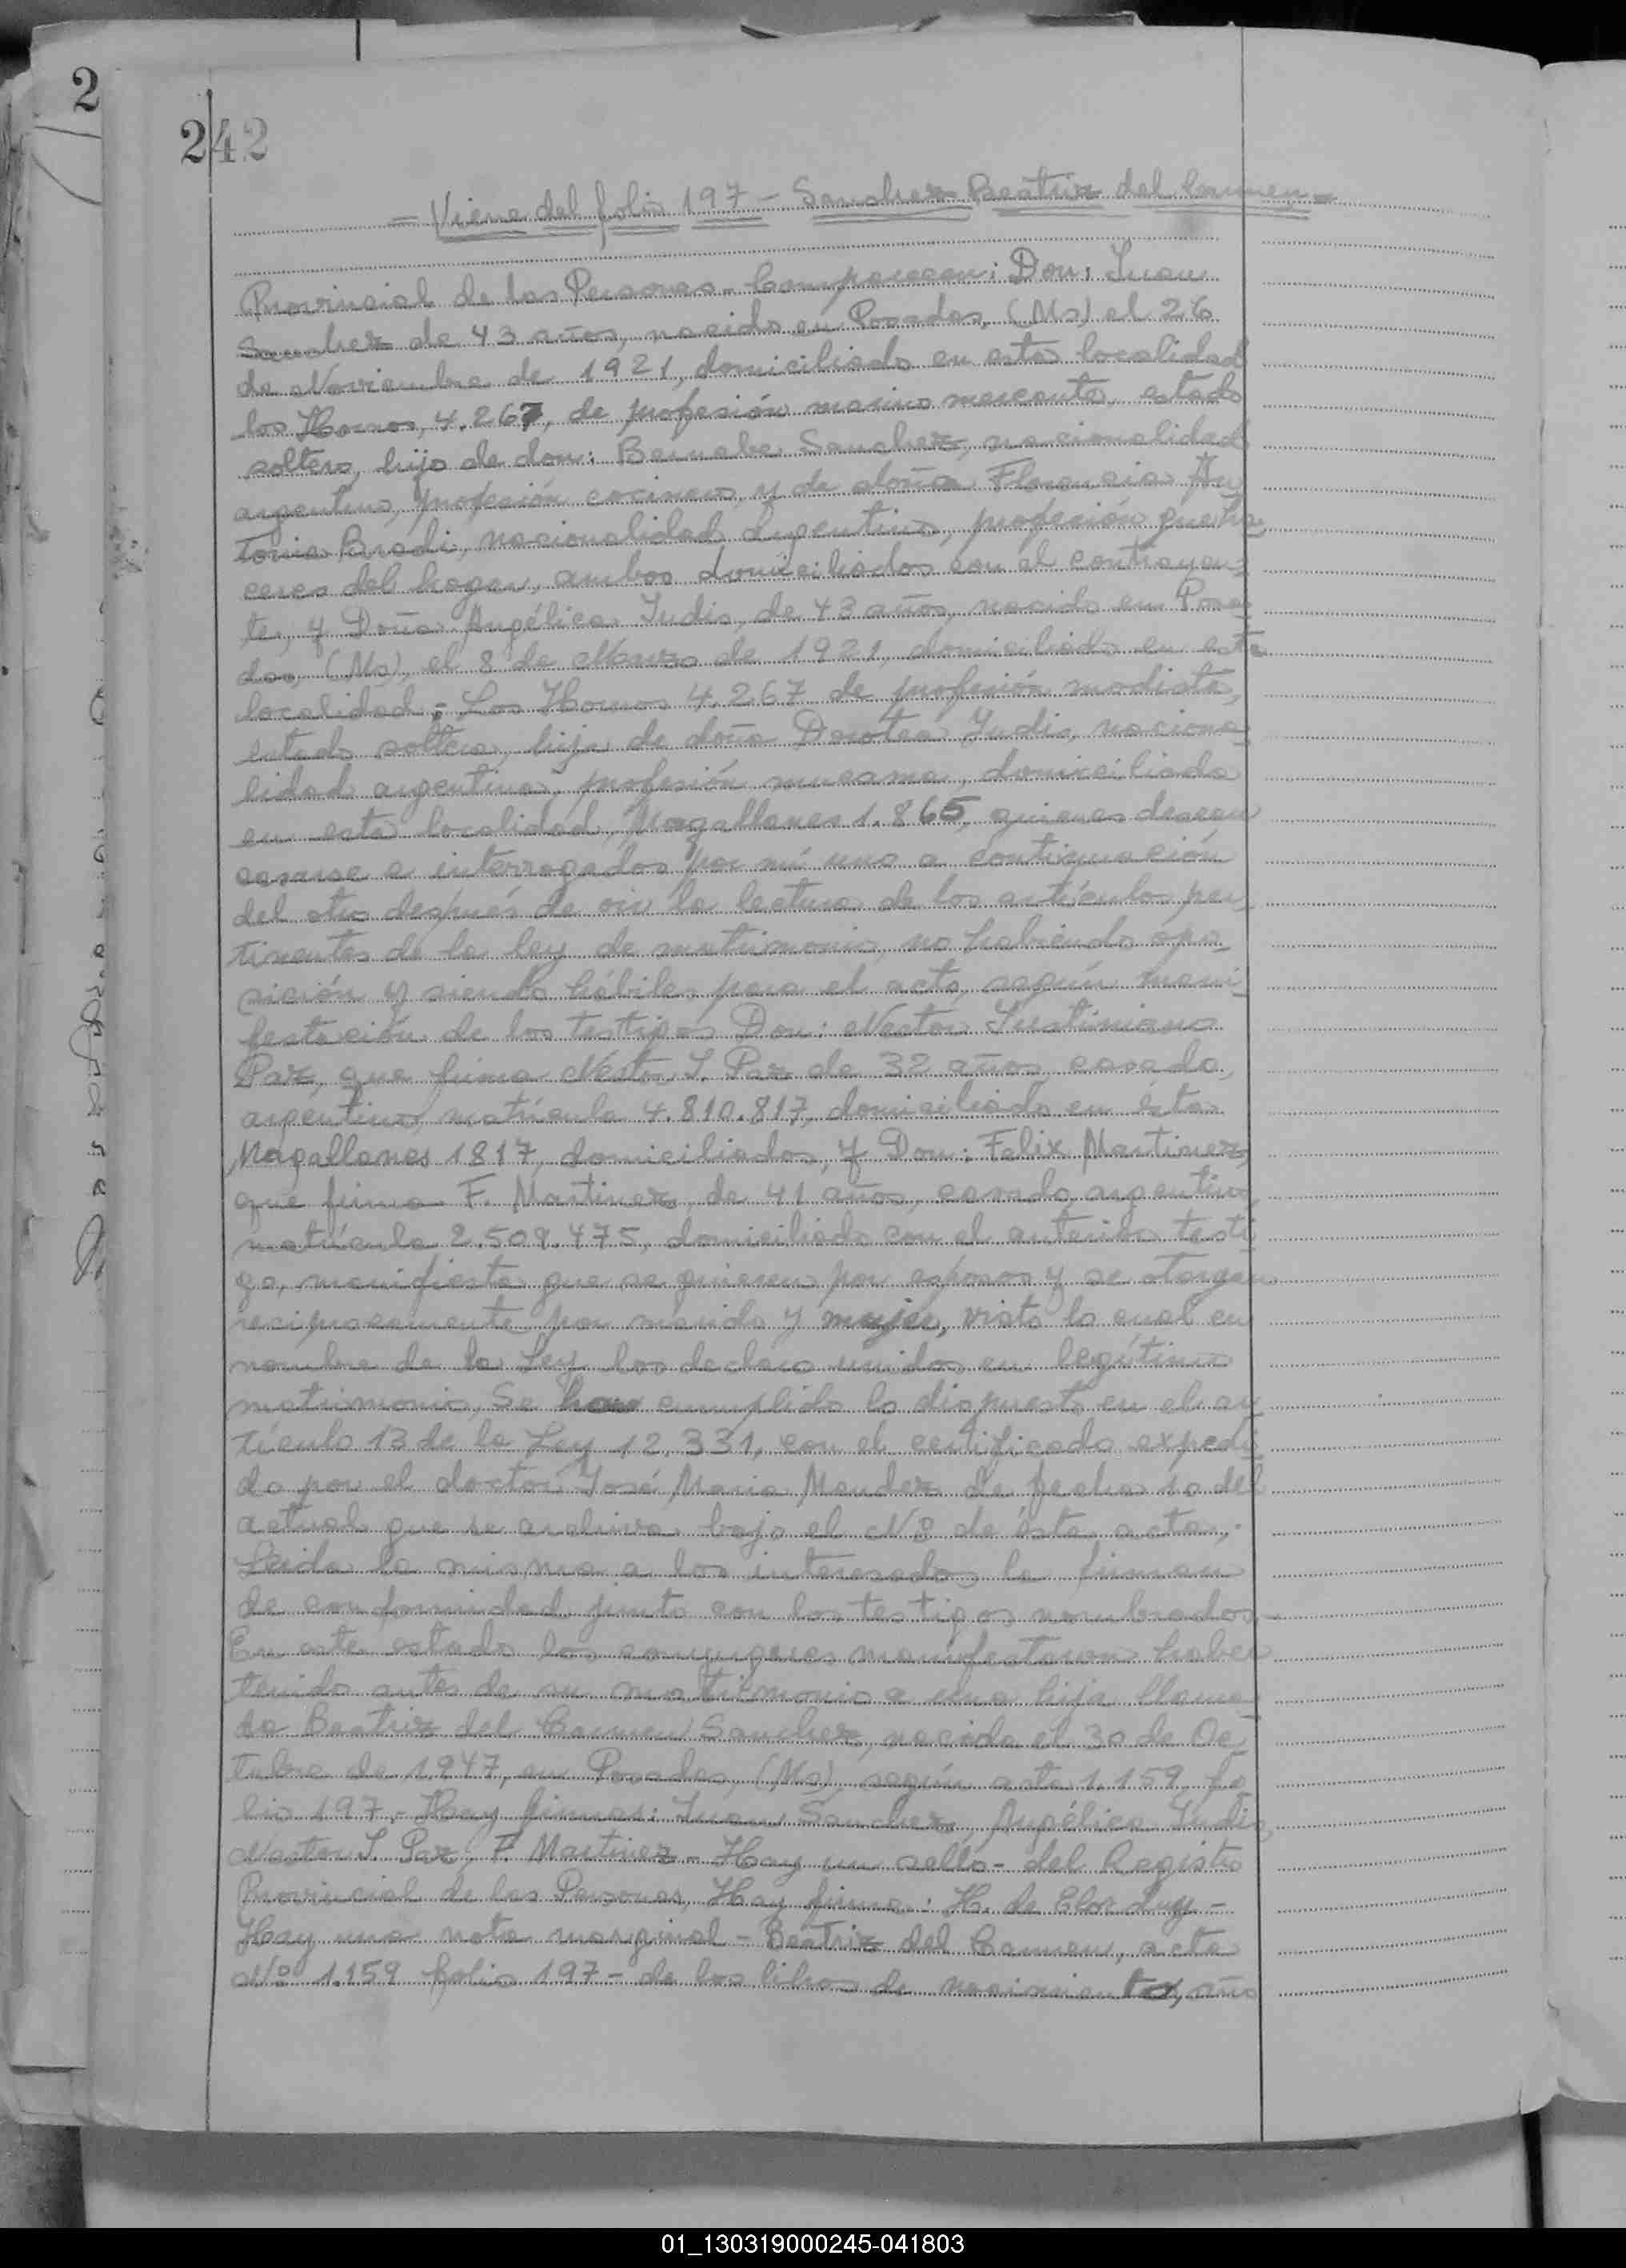 2
242
– Viene del folio 197 – Sanchez Beatriz del Carmen –
Provincial de las Personas – Comparecen: Don: Juan
Sanchez de 43 años, nacido en Posadas, (Ms) el 26
de Noviembre de 1921, domiciliado en esta localidad
los Hornos, 4.267, de profesión marino mercante, estado
soltero, hijo de don: Bernabe Sanchez, nacionalidad
argentino, profesión cocinero, y de doña Florencia An
tonia Bradi, nacionalidad argentina, profesión queha
ceres del hogar, ambos domiciliados con el contrayen-
te, y Doña Angélica Judis, de 43 años, nacida en Posa-
das, (Ms), el 8 de Marzo de 1921, domiciliada en esta
localidad, Los Hornos 4.267 de profesión modista,
estado soltera, hija de doña Dorotea Judis, naciona-
lidad argentina, profesión mucama, domiciliada
en esta localidad, Magallanes 1.865, quienes desean
casarse e interrogados por mí uno a continuación
del otro después de oir la lectura de los artículos per-
tinentes de la ley de matrimonio, no habiendo opo-
sición y siendo hábiles para el acto, según mani-
festación de los testigos Don: Nestor Justiniano
Paz, que firma Néstor J. Paz de 32 años, casado,
argentino, matrícula 4.810.817, domiciliado en ésta
Magallanes 1817, domiciliados, y Don: Felix Martinez,
que firma F. Martinez, de 41 años, casado, argentino,
matrícula 2.509.475, domiciliado con el anterior testi
go, manifiesta que se quieren por esposos y se otorgan
reciprocamente por marido y mujer, visto lo cual en
nombre de la Ley los declaro unidos en legítimo
matrimonio, Se han cumplido lo dispuesto en el ar
tículo 13 de la Ley 12.331, con el certificado expedi
do por el doctor José Maria Mendez de fecha 10 del
actual que se archiva bajo el Nº de ésta acta,.
Leida la misma a los interesados la firman
de conformidad junto con los testigos nombrados.–
En este estado los conyugues manifestaron haber
tenido antes de su matrimonio a una hija llama-
da Beatriz del Carmen Sanchez, nacida el 30 de Oc
tubre de 1.947, en Posadas, (Ms), según acta 1.159, fo
lio 197.– Hay firmas: Juan Sanchez, Angélica Judis
Nestor J. Paz, F. Martinez – Hay un sello – del Registro
Provincial de las Personas, Hay firma: H. de Elorduy –
Hay una nota marginal – Beatriz del Carmen, acta
Nº 1.159 folio 197 – de los libros de nacimiento, año
01_130319000245-041803